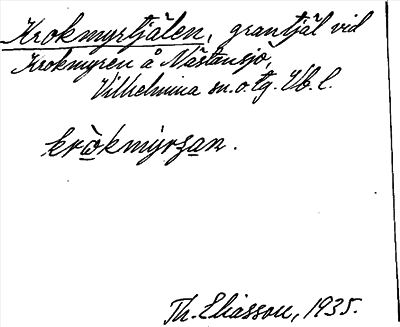 Krokmyrtjälen, grantjäl vid
Krokmyren å Nästansjö,
Vilhelmina sn. o. tg. Vb. l.
kròkmýrʒan.
Th. Eliasson, 1935.